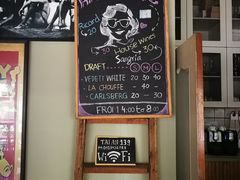 Ricard
20
House Wines
30
30€
Sangria
DRAFT S M L
- VEDETT WHITE 20 30 40
- LA CHOUFFE - 40 -
- CARLSBERG 20 30
FROM 4:00 to 8:00
WiFi